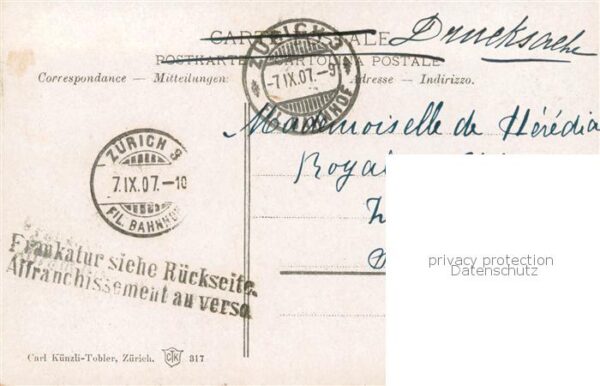 CARTE POSTALE Drucksache
POSTKARTE CARTOLINA POSTALE
Correspondance — Mitteilungen Adresse — Indirizzo.
ZÜRICH 3
-7 IX.07.-9
BAHNHOF
Mademoiselle de Hérédia
Royal
ZÜRICH 3
7.IX.07.-10
FIL. BAHNHOF
Frankatur siehe Rückseite.
Affranchissement au verso.
privacy protection
Datenschutz
Carl Künzli-Tobler, Zürich. CTK 317